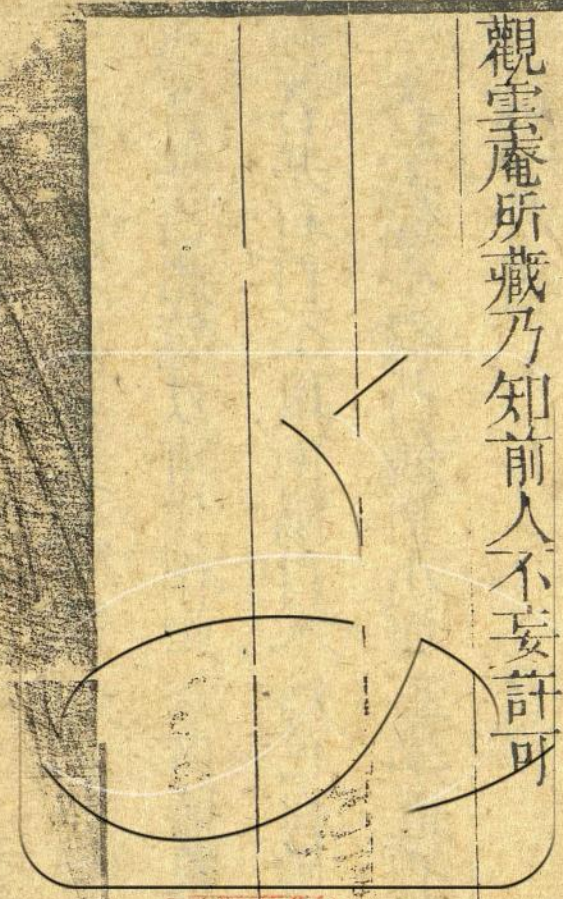 觀雲庵所藏乃知前人不妄許可